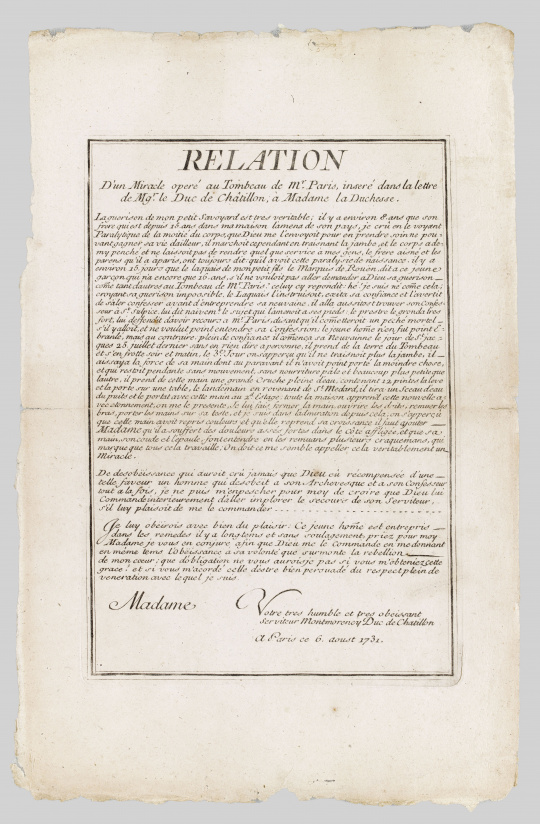 RELATION
D'un Miracle operé au Tombeau de Mr. Paris, inseré dans la lettre
de Mgr. le Duc de Châtillon, à Madame la Duchesse.
La guerison de mon petit Savoyard est tres veritable; il y a environ 8 ans que son
frere qui est depuis 16 ans dans ma maison lamena de son pays, je crû en le voyant
Paralytique de la moitié du corps, que Dieu me l'envoyoit pour en prendre soin ne pou-
vant gagner sa vie dailleur, il marchoit cependant en trainant la jambe, et le corps a de-
my penché et ne laissoit pas de rendre quelque service a mes gens, le frere aisné et les
parens qu'il a aparis, ont toujours dit qu'il avoit cette paralysie de naissance; il y a
environ 15 jours que le laquais de mon petit fils le Marquis de Roüen dit a ce jeune
garçon, qui n'a encore que 16 ans, s'il ne vouloit pas aller demander a Dieu sa guerison
come tant dautres au Tombeau de Mr. Paris? celuy cy rependit: hé! je suis né come cela:
croyant sa guerison impossible, le Laquais l'instruisent, exita sa confiance et l'avertit
de s'aler confesser avant d'entreprendre sa neuvaine, il alla aussitost trouver son Confes-
seur a St. Sulpice, lui dit naivemt. le sujet qui l'amenoit a ses pieds: le prestre le gronda tres
fort, lui deffendit davoir recours a Mr. Paris, disant qu'il comettroit un peché mortel
s'il y alloit, et ne voulut point entendre sa Confession: le jeune home n'en fut point é-
branlé, mais au contraire plein de confiance il comença sa Neuvaine le jour de St. Jac-
ques 25. juillet dernier sans en rien dire a personne, il prend de la terre du Tombeau
et s'en frotte soir et matin, le 3e. Jour on s'apperçu qu'il ne trainoit plus la jambe, il
aissaya la force de sa main dont au paravant il n'avoit point porté la moindre chose,
et qui restoit pendante sans mouvement, sans nourriture pâle et beaucoup plus petite que
lautre, il prend de cette main une grande Cruche pleine d'eau, contenant 12 pintes la leve
et la porte sur une table, le landemain en revenant de St. Medard, il tira un Sceau deau
du puits et le portat avec cette main au 2e. Estage; toute la maison apprend cette nouvelle a-
vec etonnement, on me le presente, Je lui fais fermer la main ouvrire les doits, remuer les
bras, porter les mains sur sa teste, et je suis dans ladmiration depuis cela, on s'apperçu
que cette main avoit repris couleurs et qu'elle reprend sa croissance il faut ajouter
Madame qu'il a souffert des douleurs assés fortes dans le côté affligé, et que sa
main, son coude et l'epaule font entendre en les remuans plusieurs craquemans, qui
marque que tous cela travaille. On doit ce me semble appeler cela veritablement un
Miracle.
De desobeissance qui auroit crû jamais que Dieu eû récompensée d'une
telle faveur un homme qui desobeit a son Archevesque et a son Confesseur
tout a la fois, je ne puis m'enpescher pour moy de croire que Dieu lui
Commande interieurement daller implorer le secours de son Serviteur,
s'il luy plaisoit de me le commander
Je luy obeirois avec bien du plaisir: Ce jeune home est entrepris
dans les remedes il y a longtems et sans soulagement; priez pour moy
Madame je vous en conjure afin que Dieu me le Commande en me donnant
en même tems l'obeissance a sa volonté que surmonte la rebellion
de mon cœur; que dobligation ne vous aurois je pas si vous m'obteniez cette
grace! et si vous m'acordé celle destre bien persuadé du respect plein de
veneration avec lequel je suis
Madame
Votre tres humble et tres obeissant
Serviteur Montmorency Duc de Chatillon
A Paris ce 6. aoust 1731.